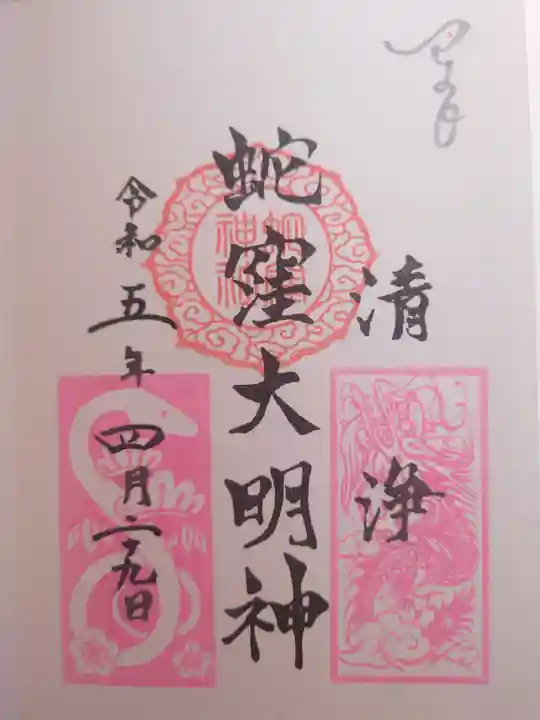 清浄
蛇窪大明神
蛇窪神社
令和五年四月二十九日